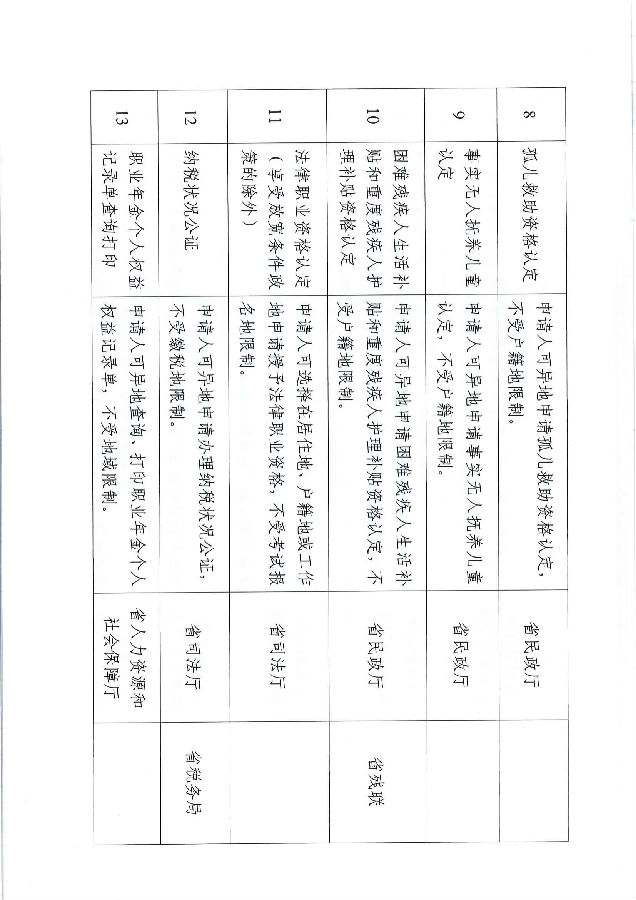 8
孤儿救助资格认定
申请人可异地申请孤儿救助资格认定，
不受户籍地限制。
省民政厅
9
事实无人抚养儿童
认定
申请人可异地申请事实无人抚养儿童
认定，不受户籍地限制。
省民政厅
10
困难残疾人生活补
贴和重度残疾人护
理补贴资格认定
申请人可异地申请困难残疾人生活补
贴和重度残疾人护理补贴资格认定，不
受户籍地限制。
省民政厅
省残联
11
法律职业资格认定
（享受放宽条件政
策的除外）
申请人可选择在居住地、户籍地或工作
地申请授予法律职业资格，不受考试报
名地限制。
省司法厅
12
纳税状况公证
申请人可异地申请办理纳税状况公证，
不受缴税地限制。
省司法厅
省税务局
13
职业年金个人权益
记录单查询打印
申请人可异地查询、打印职业年金个人
权益记录单，不受地域限制。
省人力资源和
社会保障厅